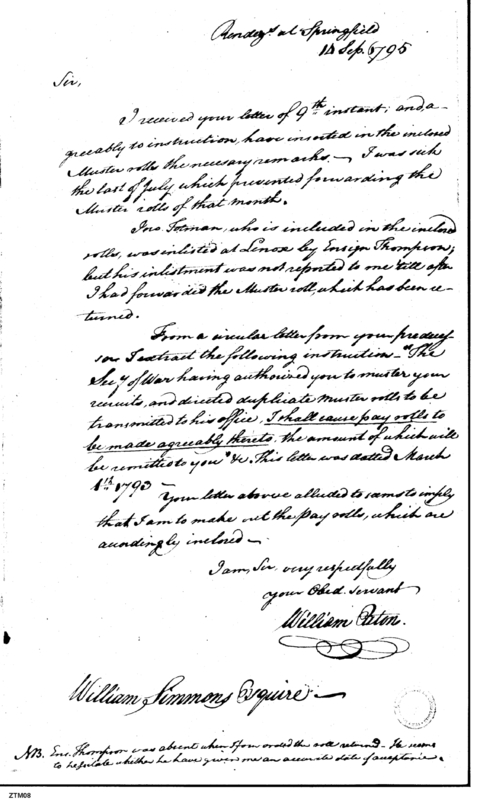 Rendezs. at Springfield
14 Sep. 1795
Sir,
I received your letter of 9th instant; and a-
greeably to instruction, have inserted in the inclosed
Muster rolls the necesary remarks.— I was sick
the last of July which prevented forwarding the
Muster rolls of that month.
Jno. Totman, who is included in the inclosed
rolls, was inlisted at Lenox by Ensign Thompson;
but his inlistment was not reported to me till after
I had forwarded the Muster roll, which has been re-
turned.
From a circular letter from your predeces-
sor I extract the following instruction—"The
Secy of War having authorized you to muster your
recruits, and directed duplicate muster rolls to be
transmitted to his office, I shall cause pay rolls to
be made agreeably thereto, the amount of which will
be remitted to you" &c. This letter was dated March
1st. 1793—
Your letter above alluded to seems to imply
that I am to make out the pay rolls, which are
accordingly inclosed—
I am, Sir, very respectfully
your Obed. servant
William Eaton.
William Simmons Esquire—
NB. Ens. Thompson was absent when I forwarded the roll returned. He seems
to hesitate whether he have given me an accurate date of acceptance.
ZTM08